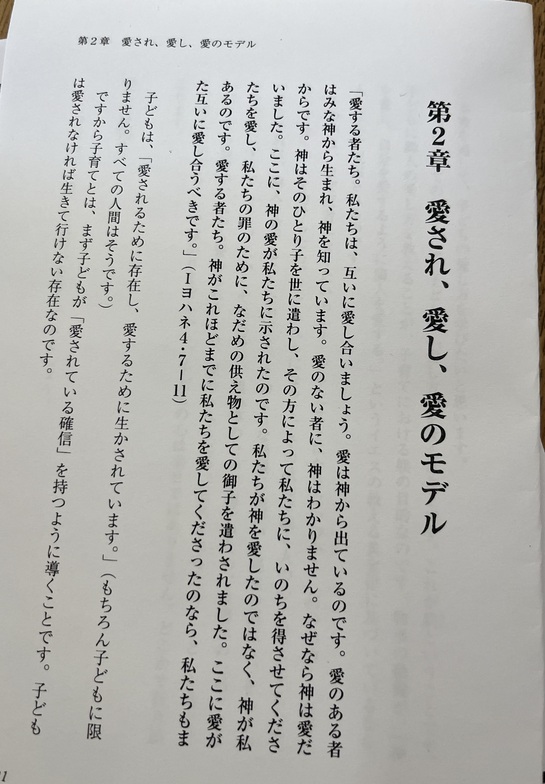 第２章　愛され、愛し、愛のモデル
第２章　愛され、愛し、愛のモデル
「愛する者たち。私たちは、互いに愛し合いましょう。愛は神から出ているのです。愛のある者
はみな神から生まれ、神を知っています。愛のない者に、神はわかりません。なぜなら神は愛だ
からです。神はそのひとり子を世に遣わし、その方によって私たちに、いのちを得させてくださ
いました。ここに、神の愛が私たちに示されたのです。私たちが神を愛したのではなく、神が私
たちを愛し、私たちの罪のために、なだめの供え物としての御子を遣わされました。ここに愛が
あるのです。愛する者たち。神がこれほどまでに私たちを愛してくださったのなら、私たちもま
た互いに愛し合うべきです。」（Ⅰヨハネ４・７―11）
子どもは、「愛されるために存在し、愛するために生かされています。」（もちろん子どもに限
りません。すべての人間はそうです。）
ですから子育てとは、まず子どもが「愛されている確信」を持つように導くことです。子ども
は愛されなければ生きて行けない存在なのです。